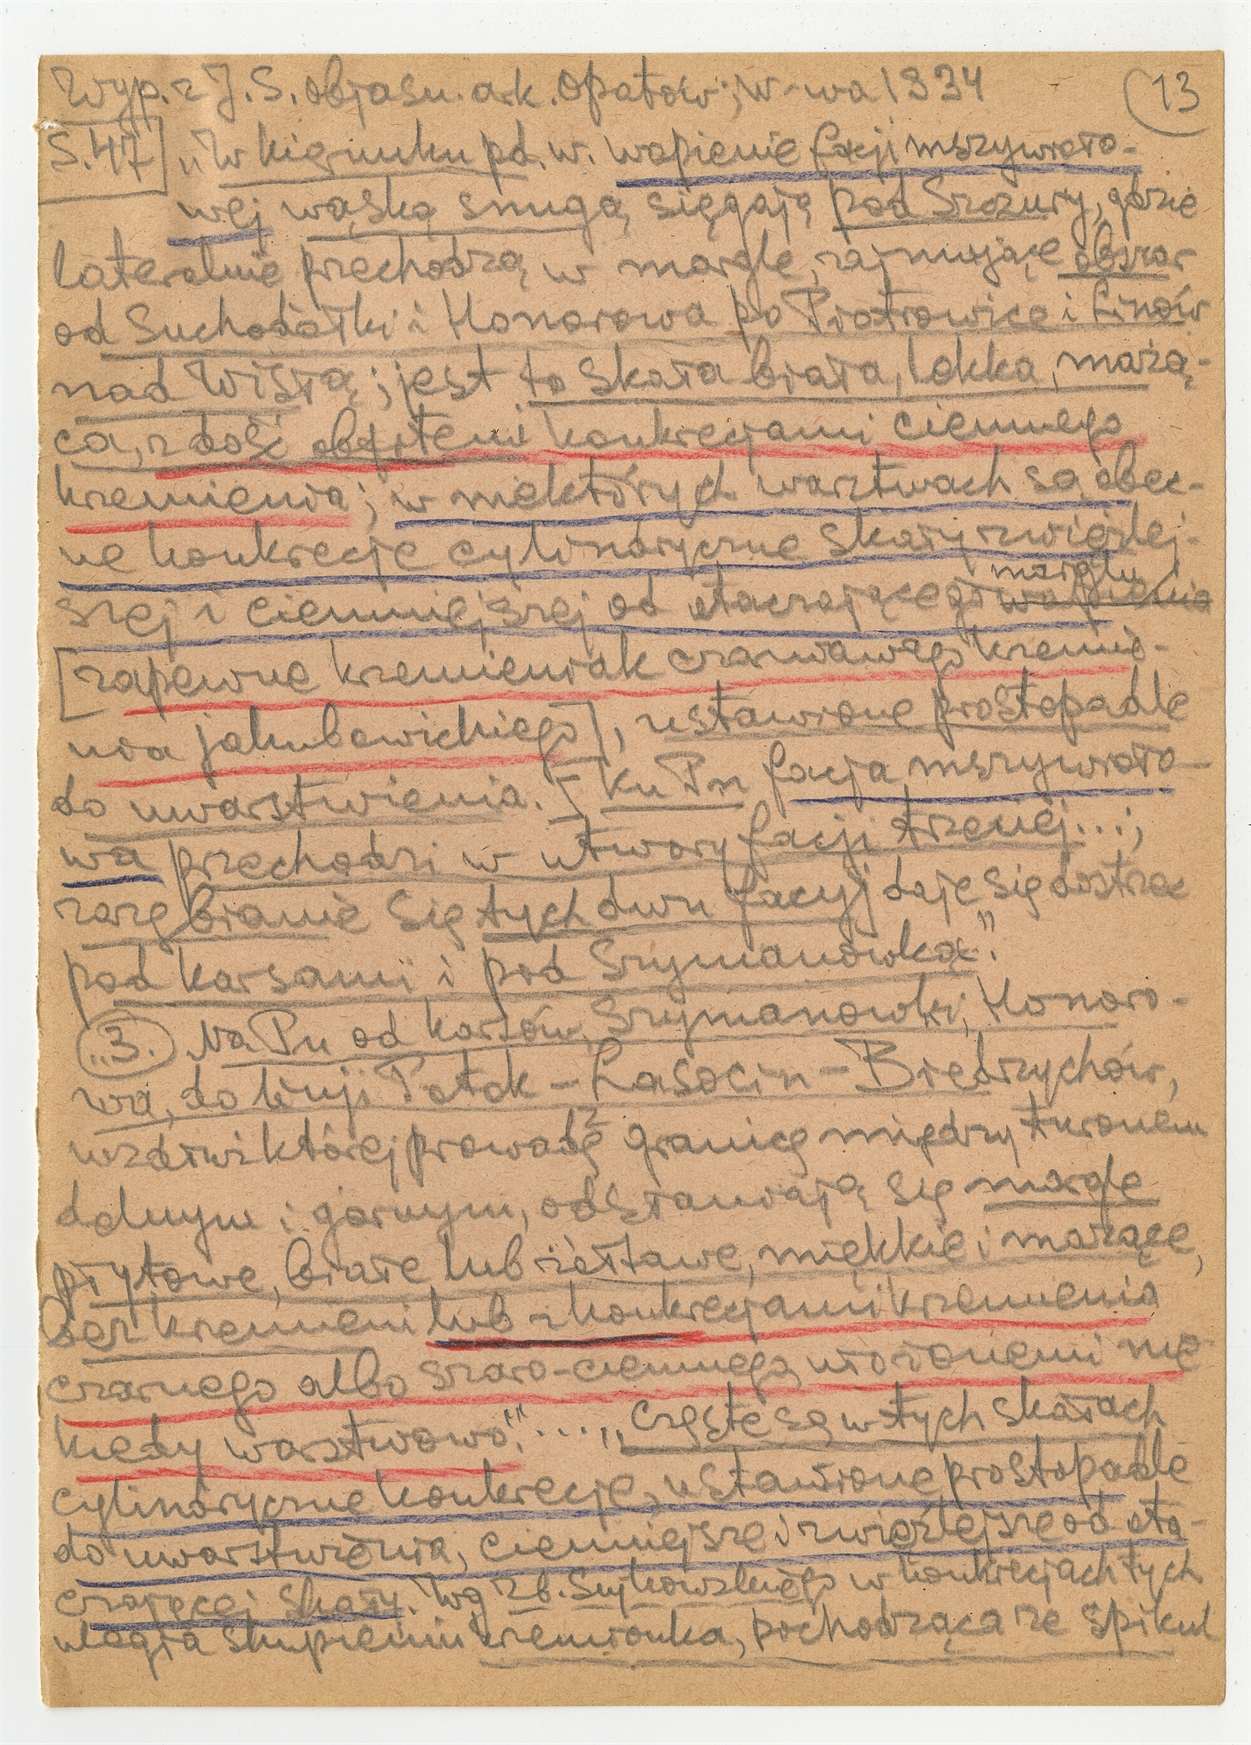 Wyp. z J. S. objaśn. ark. Opatów; W-wa 1934
(13
S.47] „W kierunku pd. w. wapienie facji mszywioło-
wej wąską smugą sięgają pod Szczury, gdzie
lateralnie przechodzą w margle, zajmujące obszar
od Suchodółki i Honorowa po Piotrowice i Linów
nad Wisłą; jest to skała biała, lekka, mażą-
ca, z dość obfitemi konkrecjami ciemnego
krzemienia; w niektórych warstwach są obec-
ne konkrecje cylindryczne skały zwięźlej-
szej i ciemniejszej od otaczającego wapienia
marglu
[zapewne krzemieniak czarniawego krzemie-
nia jakubowickiego], ustawione prostopadle
do uwarstwienia. – Ku Pn facja mszywioło-
wa przechodzi w utwory facji trzeciej...;
zazębianie się tych dwu facyj daje się dostrzec
pod Karsami i pod Szymanówką."
„3. Na Pn od Karsów, Szymanówki, Honoro-
wa, do linji Potok – Lasocin – Biedrzychów,
wzdłuż której prowadzę granicę między turonem
dolnym i górnym, odsłaniają się margle
płytowe, białe lub żółtawe, miękkie i mażące,
bez krzemieni lub z konkrecjami krzemienia
czarnego albo szaro-ciemnego, ułożonemi nie-
kiedy warstwowo." .... „Częste są w tych skałach
cylindryczne konkrecje, ustawione prostopadle
do uwarstwienia, ciemniejsze i zwięźlejsze od ota-
czającej skały. Wg Zb. Sujkowskiego w konkrecjach tych
uległa skupieniu krzemionka, pochodząca ze spikul